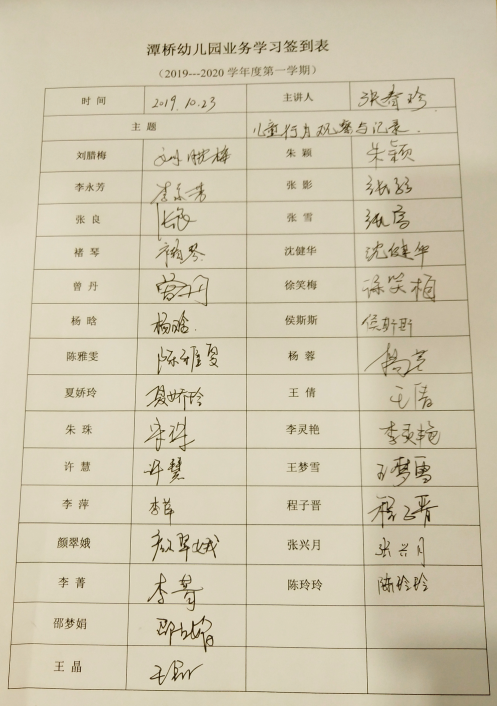 潭桥幼儿园业务学习签到表
（2019---2020 学年度第一学期）
时 间 2019.10.23 主讲人 张春珍
主 题 儿童行为观察与记录.
刘腊梅 刘腊梅 朱 颖 朱颖
李永芳 李永芳 张 影 张影
张 良 张良 张 雪 张雪
楮 琴 楮琴 沈健华 沈健华
曾 丹 曾丹 徐笑梅 徐笑梅
杨 晗 杨晗. 侯斯斯 侯斯斯
陈雅雯 陈雅雯 杨 蓉 杨蓉
夏娇玲 夏娇玲 王 倩 王倩
朱 珠 朱珠 李灵艳 李灵艳
许 慧 许慧 王梦雪 王梦雪
李 萍 李萍 程子晋 程子晋
颜翠娥 颜翠娥 张兴月 张兴月
李 菁 李菁 陈玲玲 陈玲玲
邵梦娟 邵梦娟
王 晶 王晶